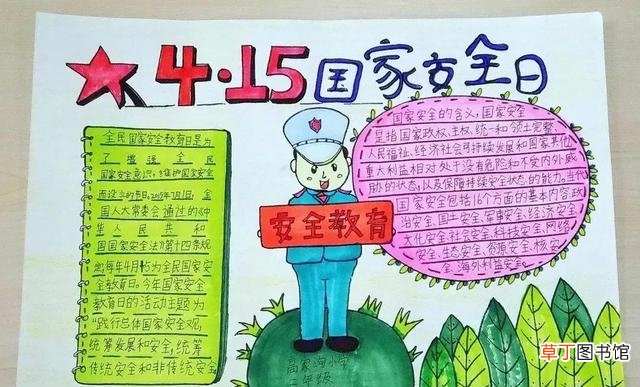 4·15国家安全日
全民国家安全教育日是为
了增强全民
国家安全意识,维护国家安全
而设立的节日,2015年7月1日,全
国人大常委会通过的《中
华人民共和
国国家安全法》第十四条规
定每年4月15为全民国家安
全教育日。今年国家安全
教育日的活动主题为
“践行总体国家安全观,
统筹发展和安全,统筹
传统安全和非传统安全
安全教育
国家安全的含义,国家安全
是指国家政权、主权、统一和领土完整、
人民福祉、经济社会可持续发展和国家其他
重大利益相对处于没有危险和不受内外威
胁的状态,以及保障持续安全状态的能力。当代
国家安全包括16个方面的基本内容:政
治安全、国土安全、军事安全、经济安全、
文化安全、社会安全、科技安全、网络
安全、生态安全、资源安全、核安
全、海外利益安全。
小学
二年级
草丁图书馆